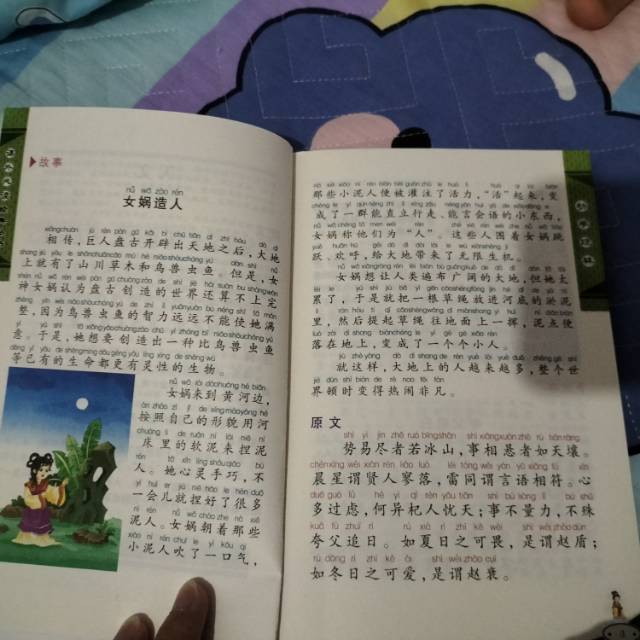 故事
nǚ wā zào rén
女娲造人
相传，巨人盘古开辟出天地之后，大地
上就有了山川草木和鸟兽虫鱼。但是，女
神女娲认为盘古创造的世界还算不上完
整，因为鸟兽虫鱼的智力远远不能使她满
意。于是，她想要创造出一种比鸟兽虫鱼
等已有的生命都更有灵性的生物。
女娲来到黄河边，
按照自己的形貌用河
床里的软泥来捏泥
人。她心灵手巧，不
一会儿就捏好了很多
泥人。女娲朝着那些
小泥人吹了一口气，
那些小泥人便被灌注了活力，“活”起来，变
成了一群能直立行走、能言会语的小东西，
女娲称他们为“人”。这些人围着女娲跳
跃、欢呼，给大地带来了无限生机。
女娲想让人类遍布广阔的大地，但她太
累了，于是就把一根草绳放进河底的淤泥
里，然后提起草绳往地面上一挥，泥点便
落在地上，变成了一个个小人。
就这样，大地上的人越来越多，整个世
界顿时变得热闹非凡。
原文
势易尽者若冰山，事相悬者如天壤。
晨星谓贤人寥落，雷同谓言语相符。心
多过虑，何异杞人忧天；事不量力，不殊
夸父追日。如夏日之可畏，是谓赵盾；
如冬日之可爱，是谓赵衰。